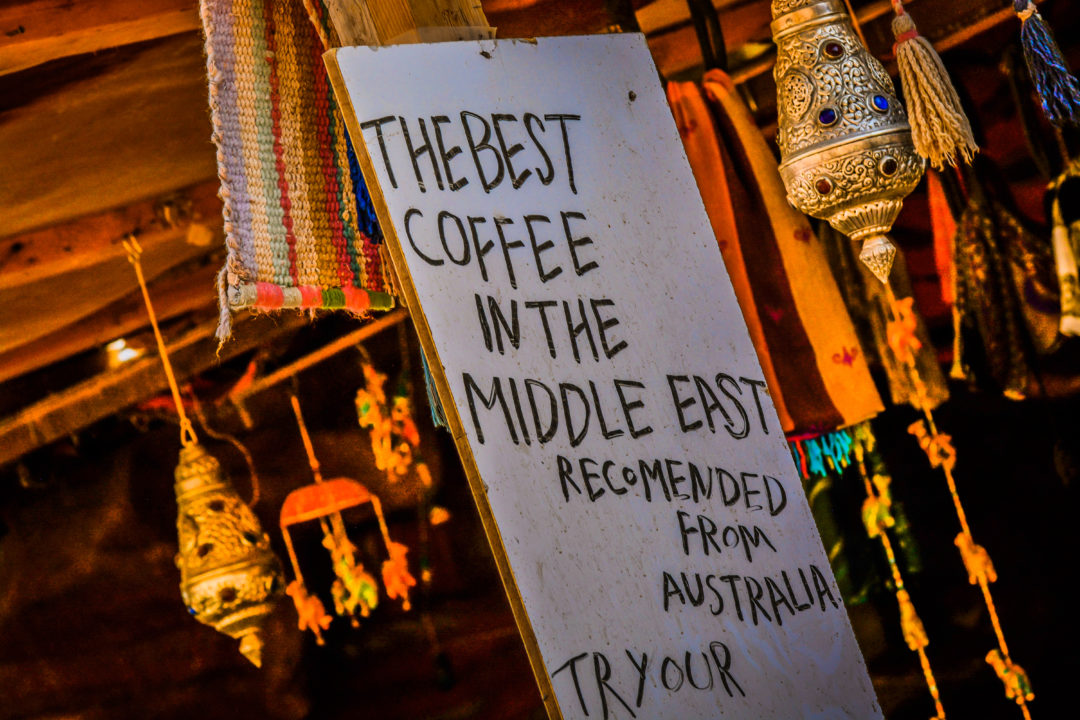 THE BEST
COFFEE
IN THE
MIDDLE EAST
RECOMENDED
FROM
AUSTRALIA
TRY OUR